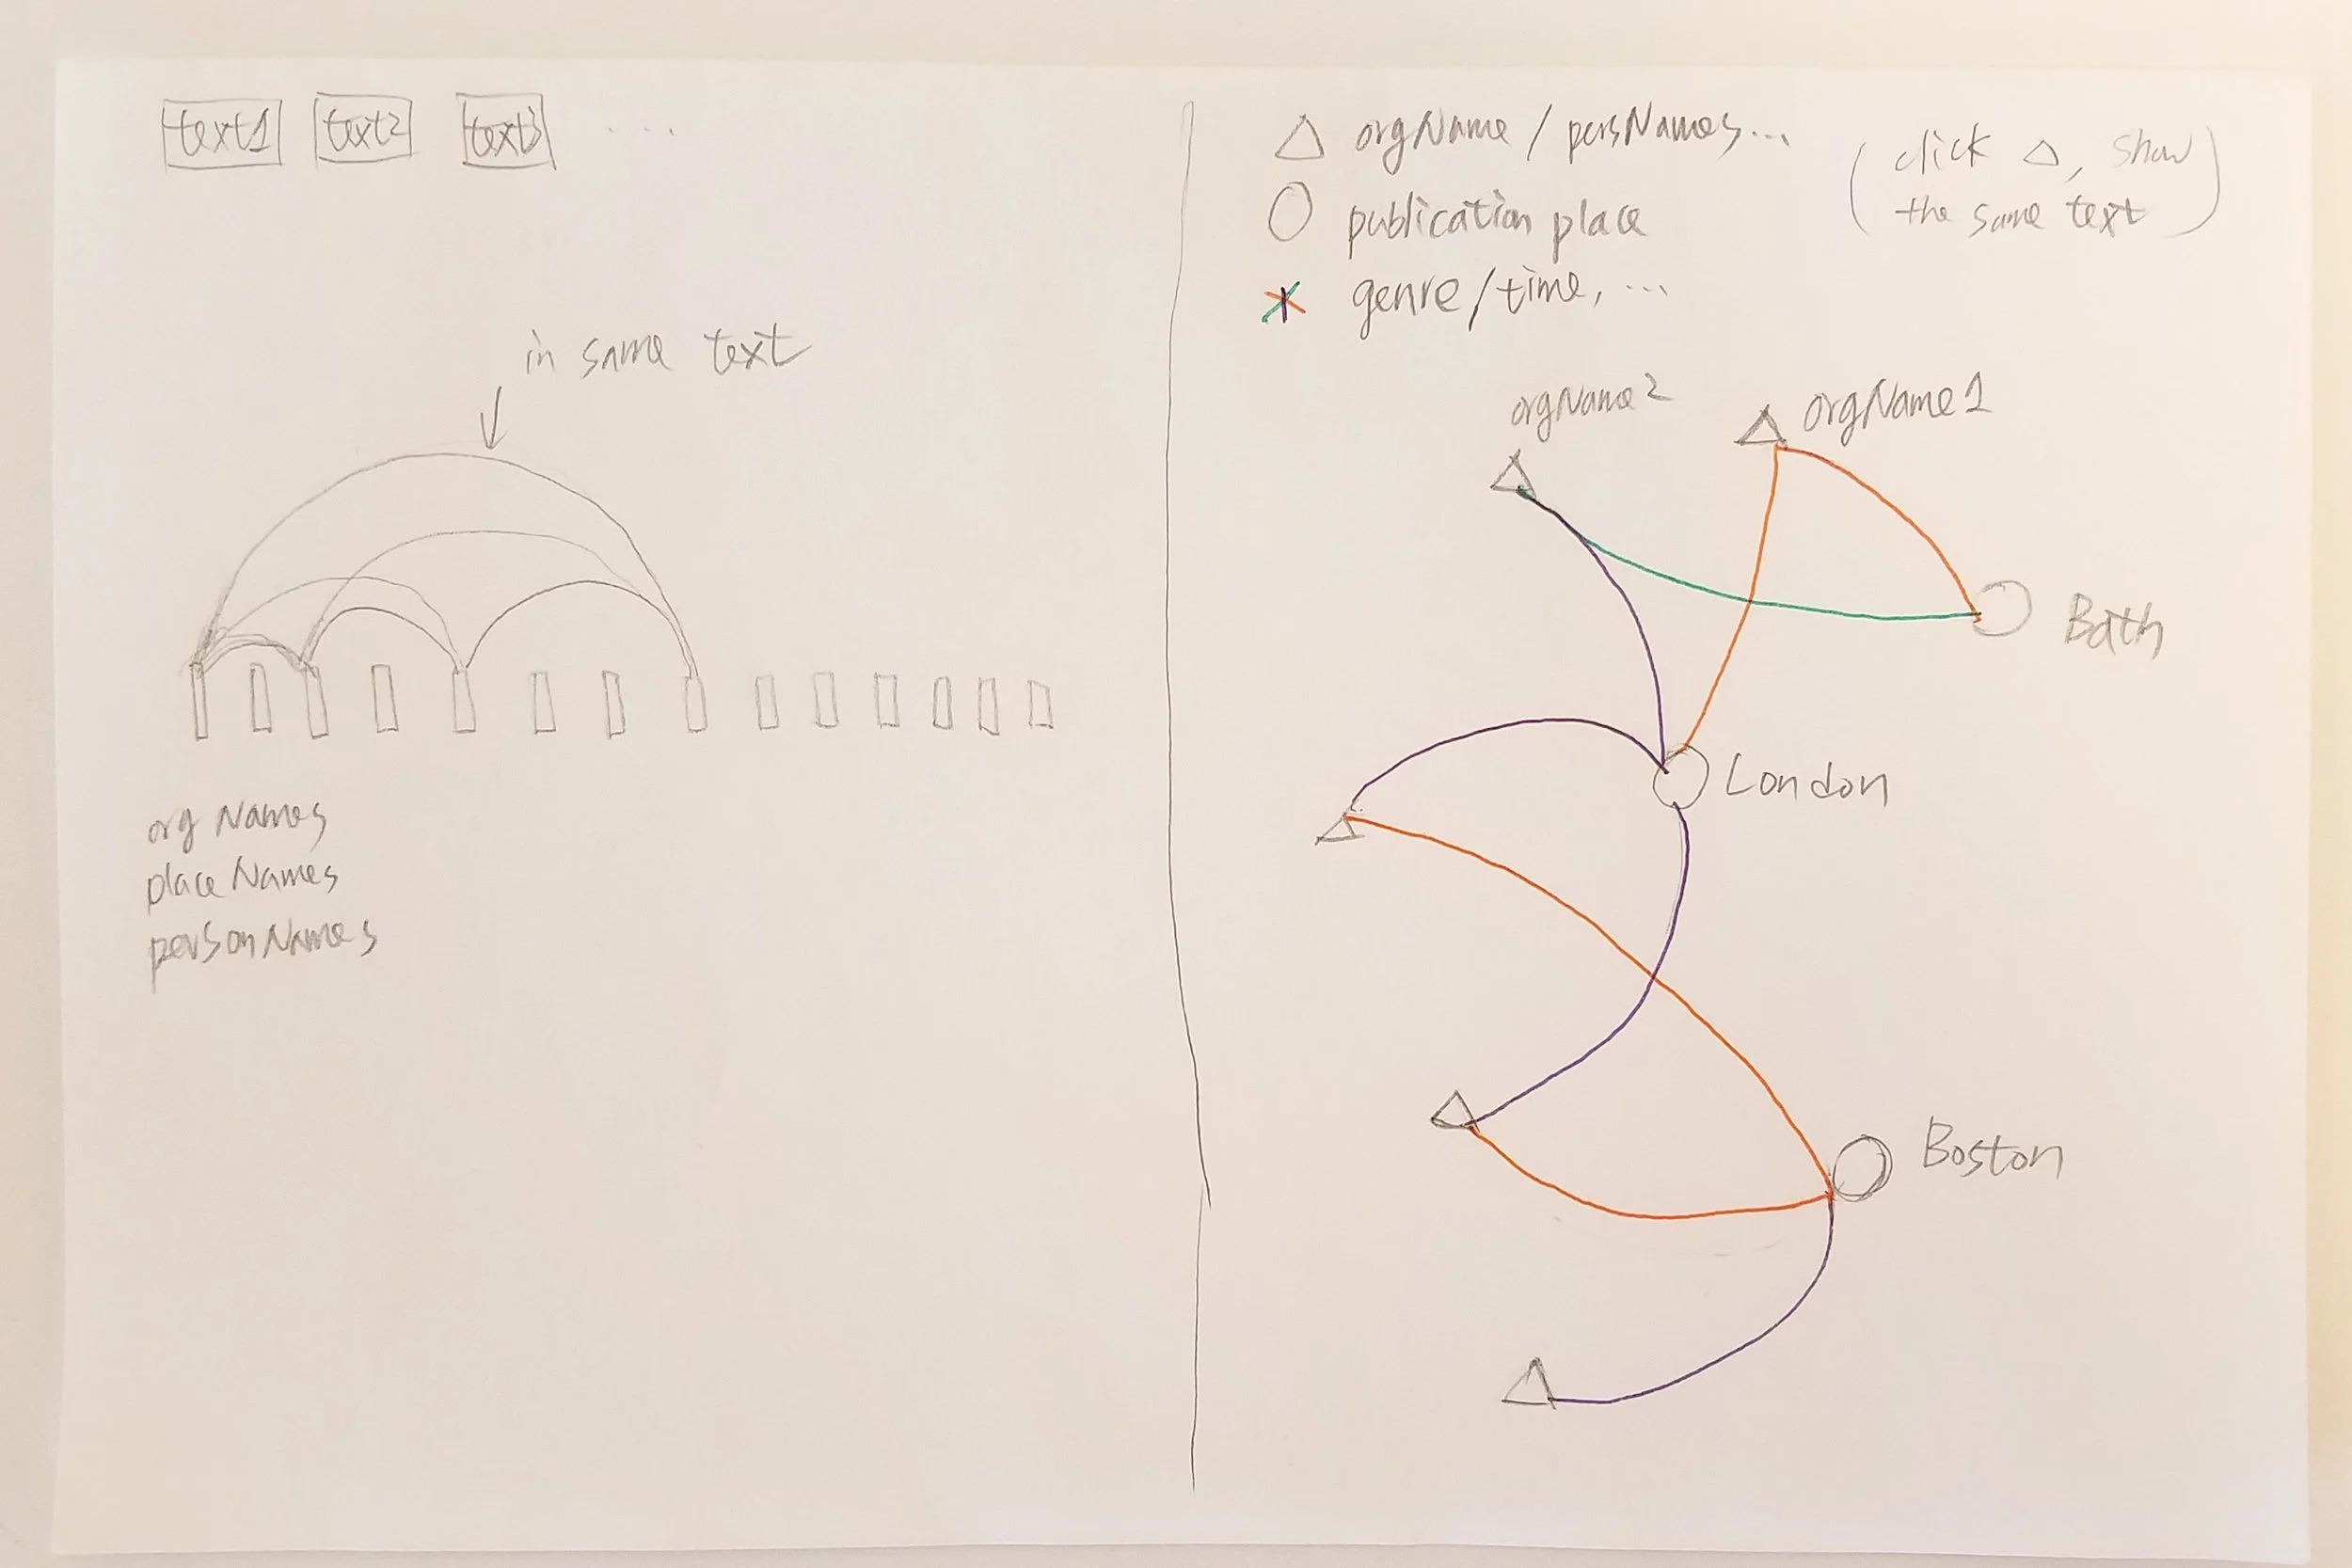 text1 text2 text3 ....
in same text
orgNames
placeNames
personNames
orgName / persNames...
publication place
genre/time, ...
(click △, show
the same text)
orgName2
orgName1
Bath
London
Boston